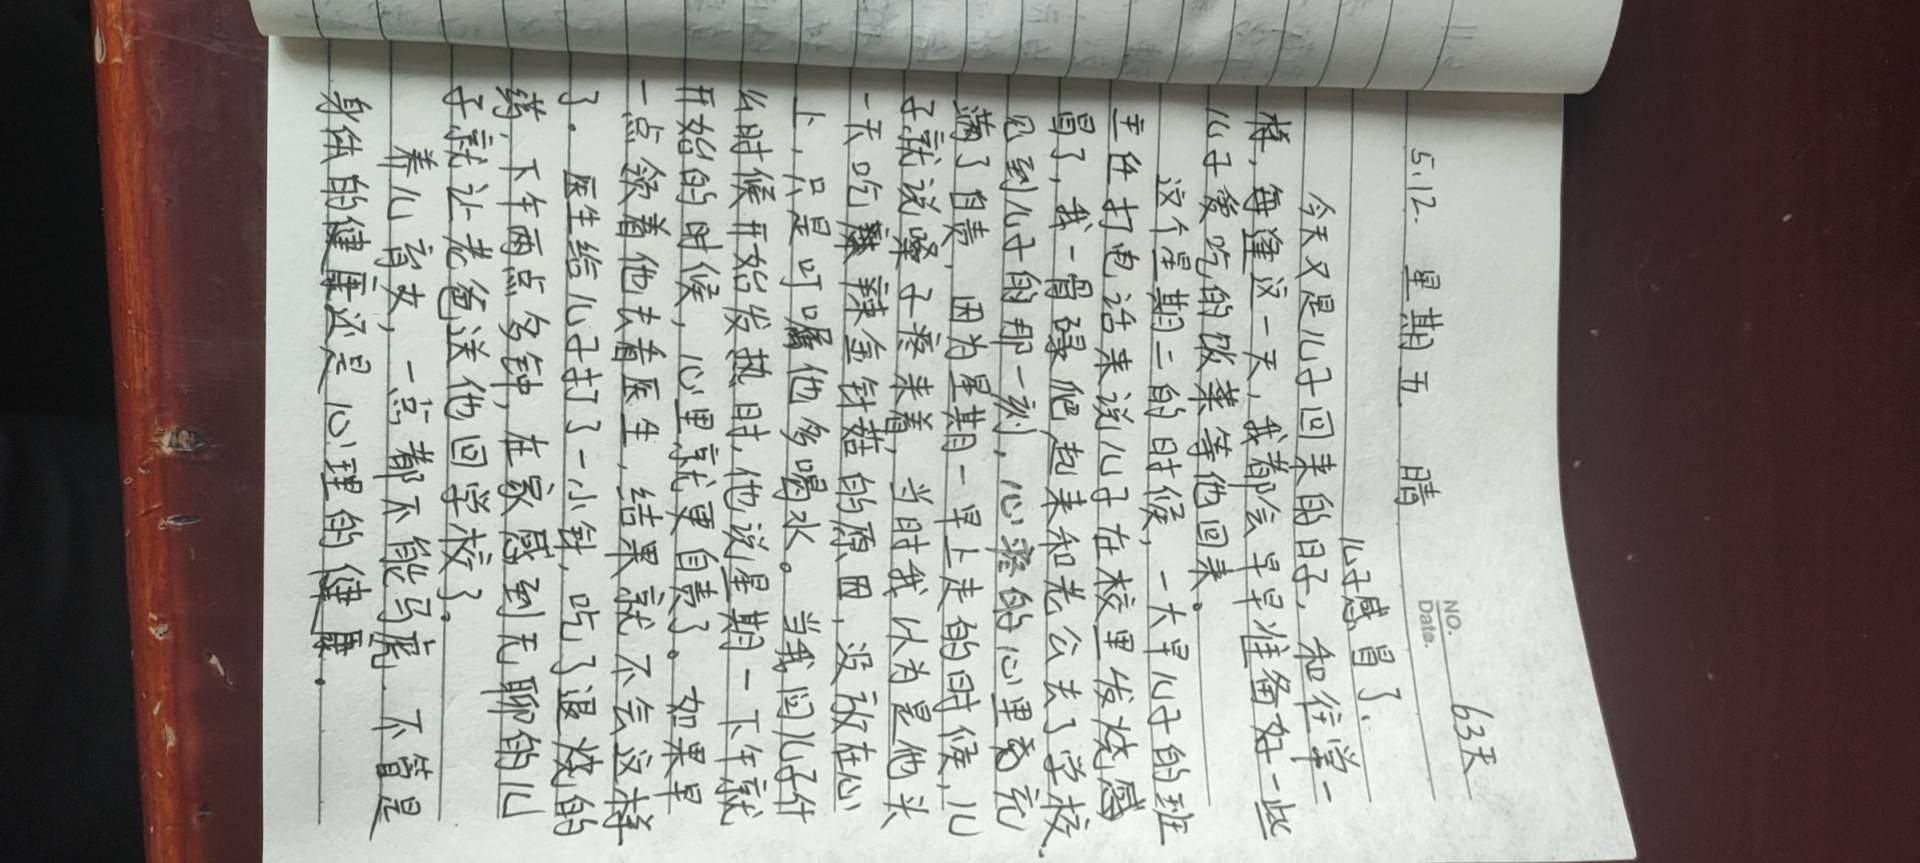 63天
NO.
Date.
5.12. 星期五 晴
儿子感冒了.
今天又是儿子回来的日子，和往常一
样，每逢这一天，我都会早早准备好一些
儿子爱吃的饭菜等他回来。
这个星期二的时候，一大早儿子的班
主任打电话来说儿子在校里发烧感
冒了，我一骨碌爬起来和老公去了学校.
见到儿子的那一刻，心疼的心里充
满了自责，因为星期一早上走的时候，儿
子就说嗓子疼来着，当时我以为是他头
一天吃辣金针菇的原因，没放在心
上，只是叮嘱他多喝水。当我问儿子什
么时候开始发热时，他说星期一下午就
开始的时候，心里就更自责了。如果早
一点领着他去看医生，结果就不会这样
了。医生给儿子打了一小针，吃了退烧的
药，下午两点多钟，在家感到无聊的儿
子就让老爸送他回学校了。
养儿育女，一点都不能马虎.不管是
身体的健康还是心理的健康.